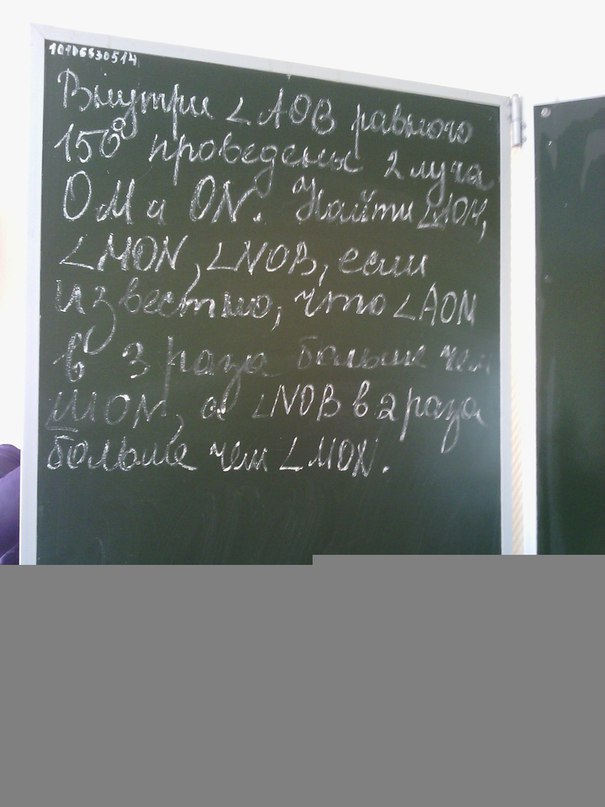 10106530514
Внутри ∠AOB равного
150° проведены 2 луча
OM и ON. Найти ∠AOM,
∠MON, ∠NOB, если
известно, что ∠AOM
в 3 раза больше чем
∠MON, а ∠NOB в 2 раза
больше чем ∠MON.